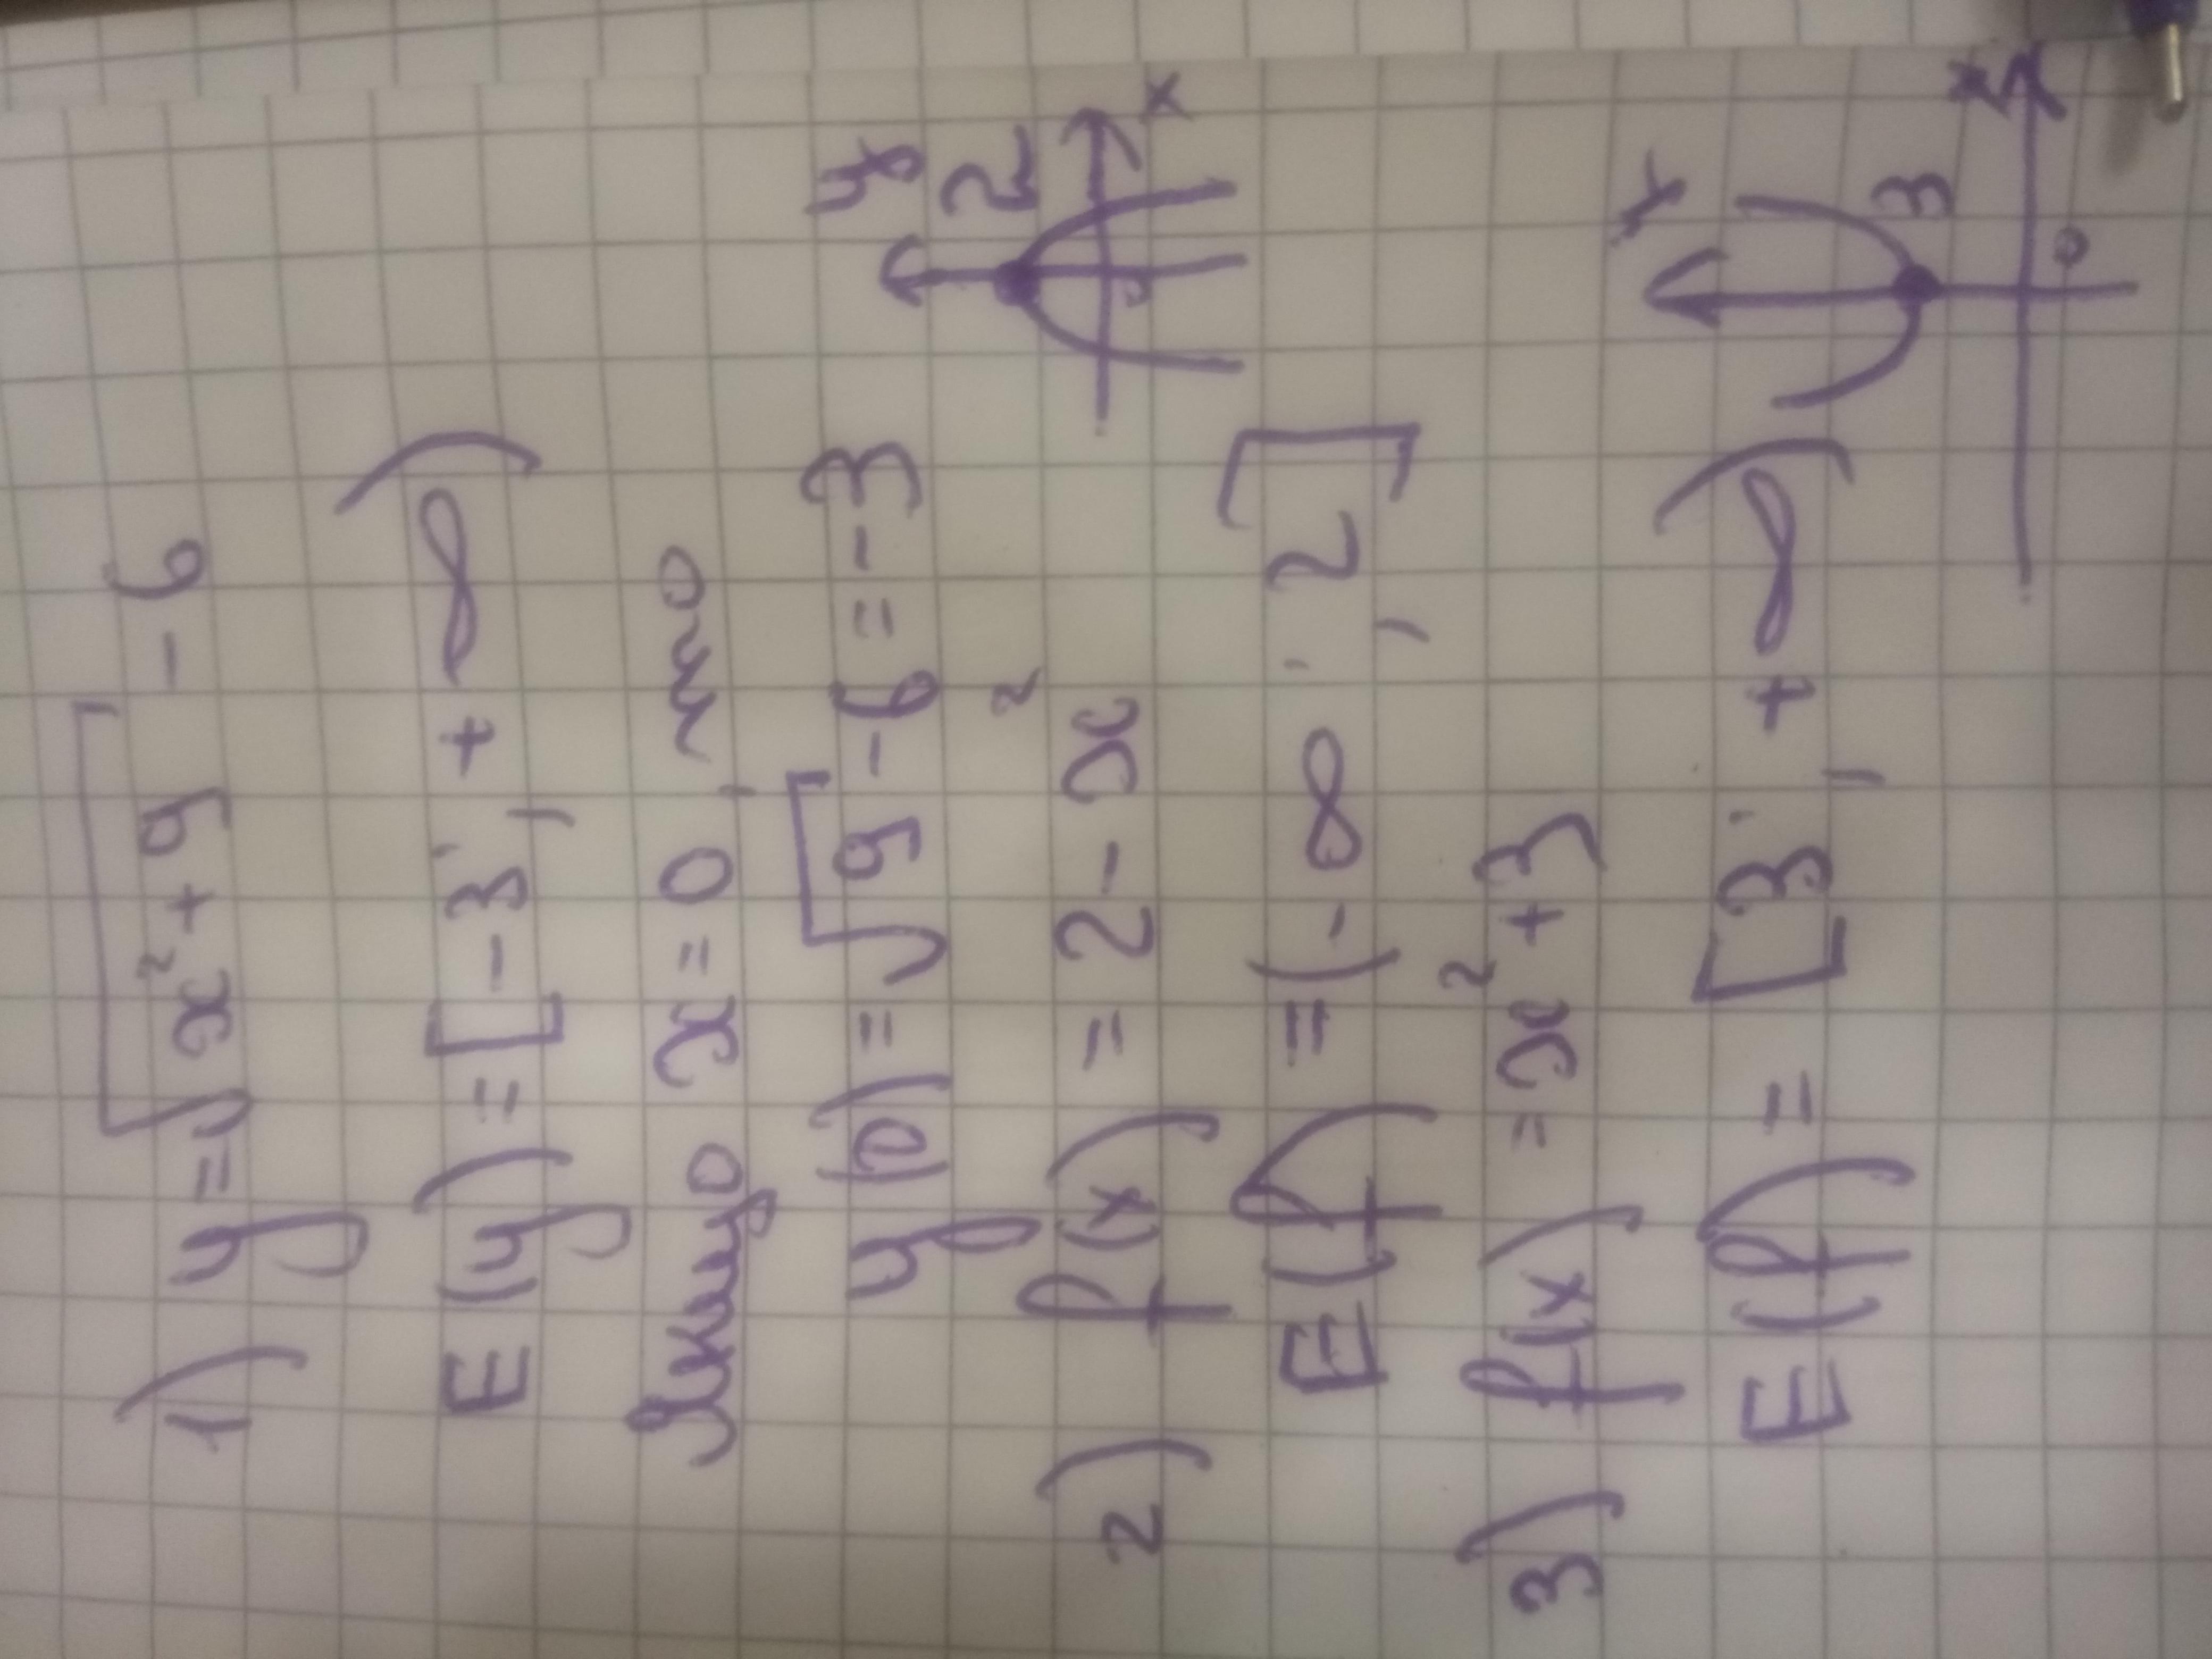 1) y = √x² + 9 - 6
E(y) = [-3; +∞)
Якщо x = 0, то
y(0) = √9 - 6 = -3
2) f(x) = 2 - x²
E(f) = (-∞; 2]
y
2
x
0
3) f(x) = x² + 3
E(f) = [3; +∞)
x
3
0